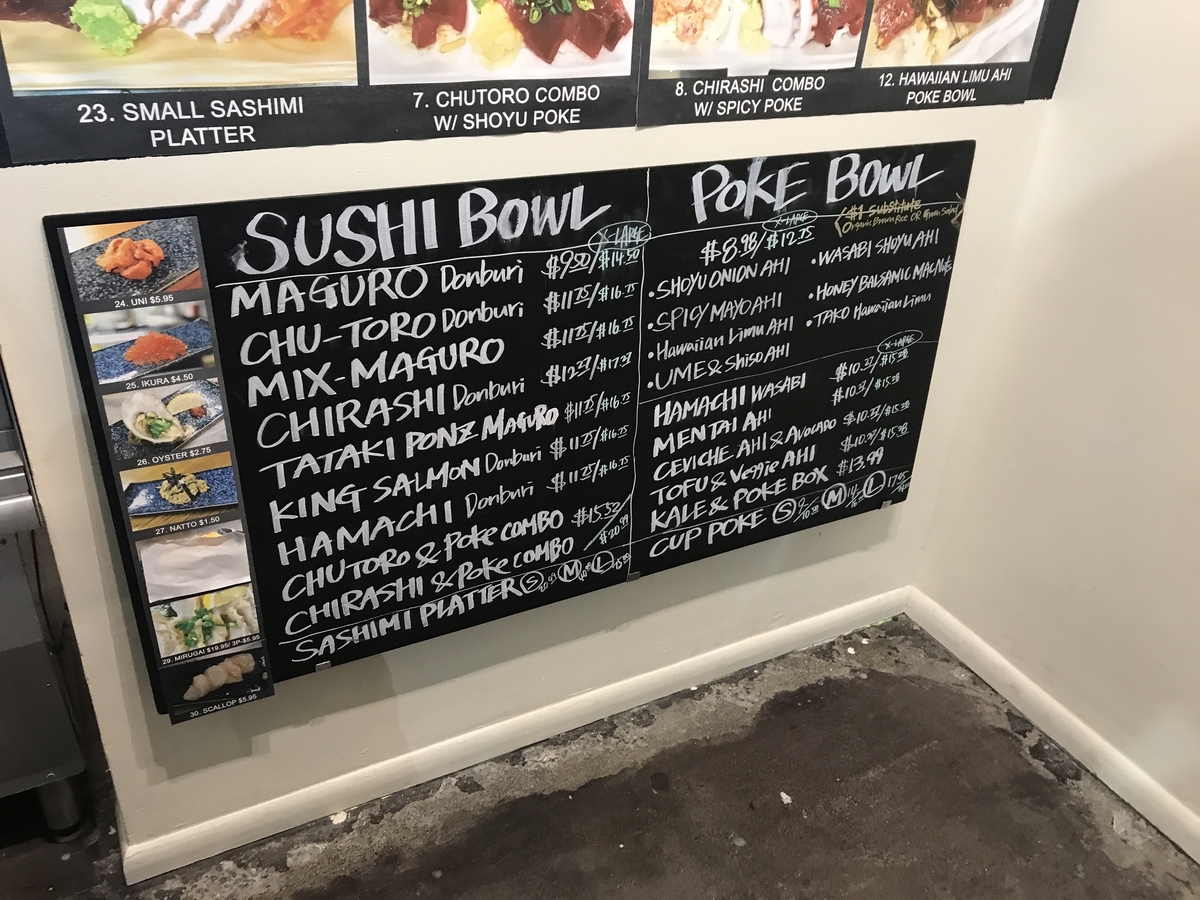 23. SMALL SASHIMI
PLATTER
7. CHUTORO COMBO
W/ SHOYU POKE
8. CHIRASHI COMBO
W/ SPICY POKE
12. HAWAIIAN LIMU AHI
POKE BOWL
24. UNI $5.95
25. IKURA $4.50
26. OYSTER $2.75
27. NATTO $1.50
29. MIRUGAI $19.95/ 3P-$5.95
30. SCALLOP $5.95
SUSHI BOWL
X-LARGE
MAGURO Donburi $9.50/$14.50
CHU-TORO Donburi $11.75/$16.75
MIX-MAGURO $11.75/$16.75
CHIRASHI Donburi
TATAKI PONZ MAGURO $11.75/$16.75
KING SALMON Donburi $11.75/$16.75
HAMACHI Donburi $11.75/$16.75
CHUTORO & POKE COMBO
CHIRASHI & POKE COMBO
SASHIMI PLATTER S M L
POKE BOWL
X-LARGE
$8.98/$12.75
#1 Substitute
Organic Brown Rice OR Green Salad
• SHOYU ONION AHI
• SPICY MAYO AHI
• Hawaiian Limu AHI
• UME & Shiso AHI
• WASABI SHOYU AHI
• HONEY BALSAMIC MAC Nuts
• TAKO Hawaiian Limu
X-LARGE
HAMACHI WASABI
MENTAI AHI
CEVICHE AHI & Avocado
TOFU & Veggie AHI
KALE & POKE BOX $13.99
CUP POKE S M L